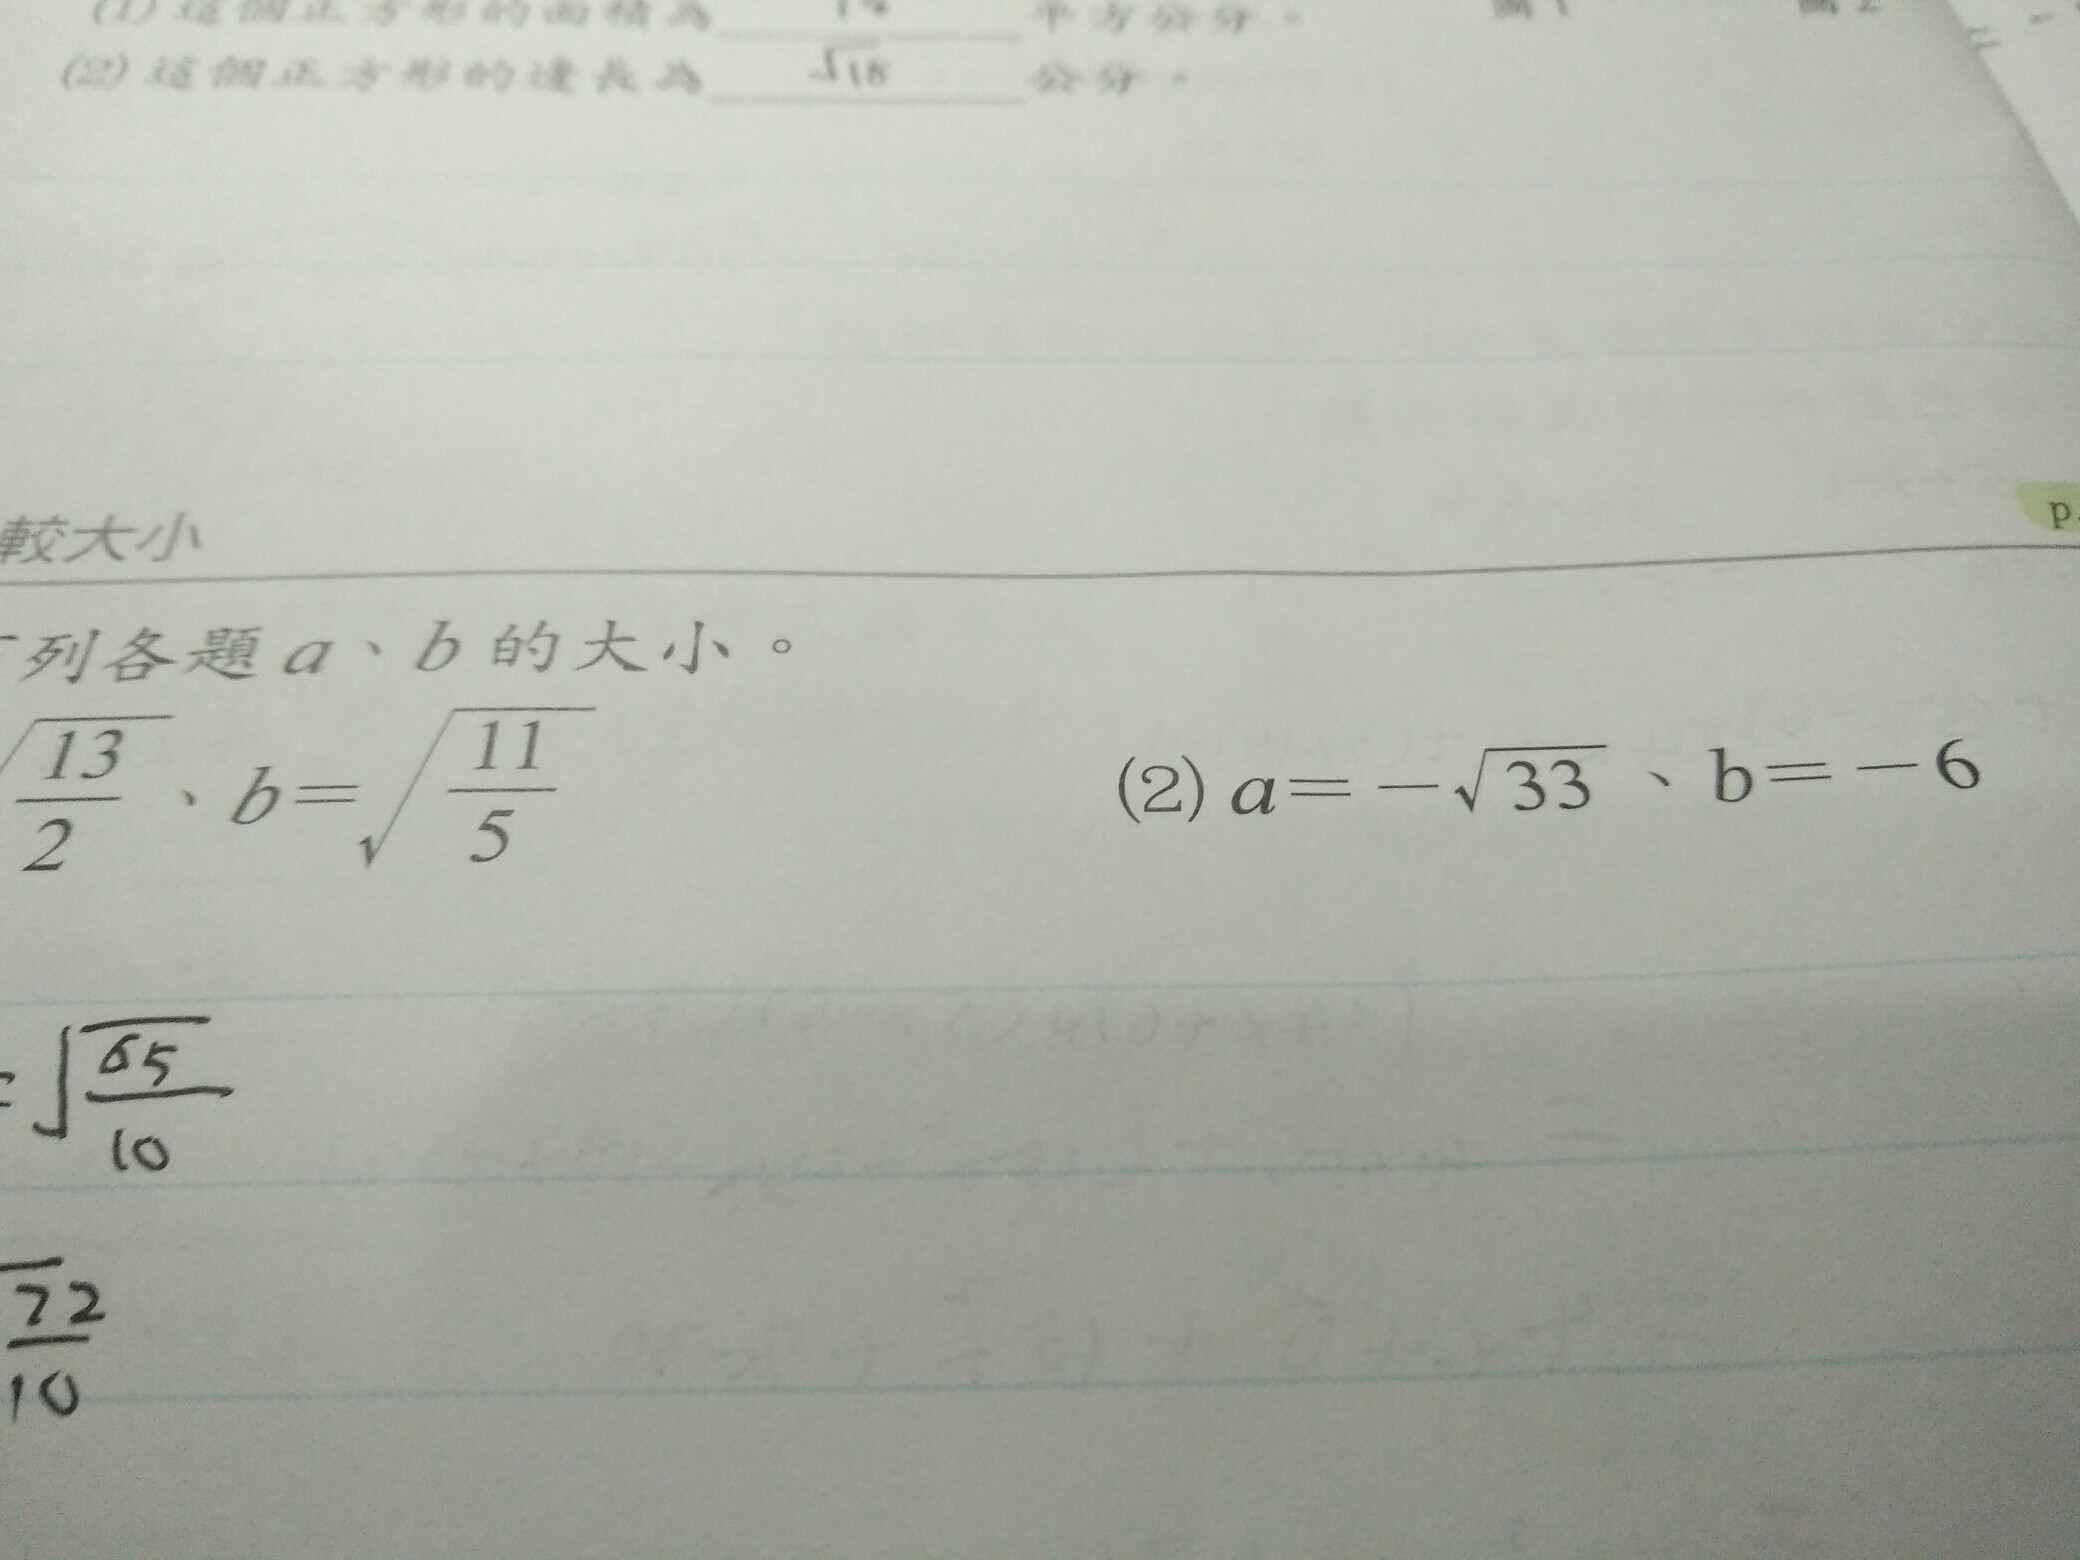 (1) 這個正方形的面積為 平方公分。 圖1 圖2
(2) 這個正方形的邊長為 √18 公分。
較大小
p.
下列各題 a、b 的大小。
√(13/2)、b=√(11/5)
(2) a=-√33、b=-6
=√(65/10)
22/10